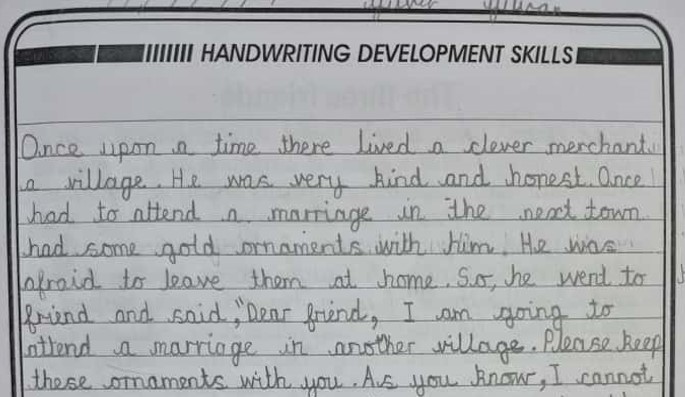 HANDWRITING DEVELOPMENT SKILLS
Once upon a time there lived a clever merchant
a village. He was very kind and honest. Once
had to attend a marriage in the next town.
had some gold ornaments with him. He was
afraid to leave them at home. So, he went to
friend and said,"Dear friend, I am going to
attend a marriage in another village. Please keep
these ornaments with you. As you know, I cannot